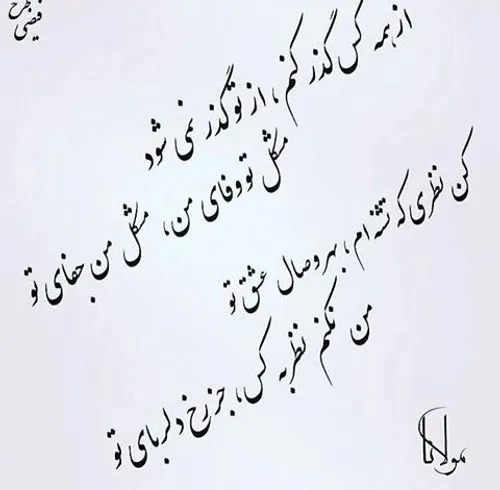 طرح
فیضی
از همه کس گذر کنم، از تو گذر نمی شود
مشکل تو وفای من، مشکل من جفای تو
کن نظری که تشنه ام، بهر وصال عشق تو
من نکنم نظر به کس، جز رخ دلربای تو
مولانا